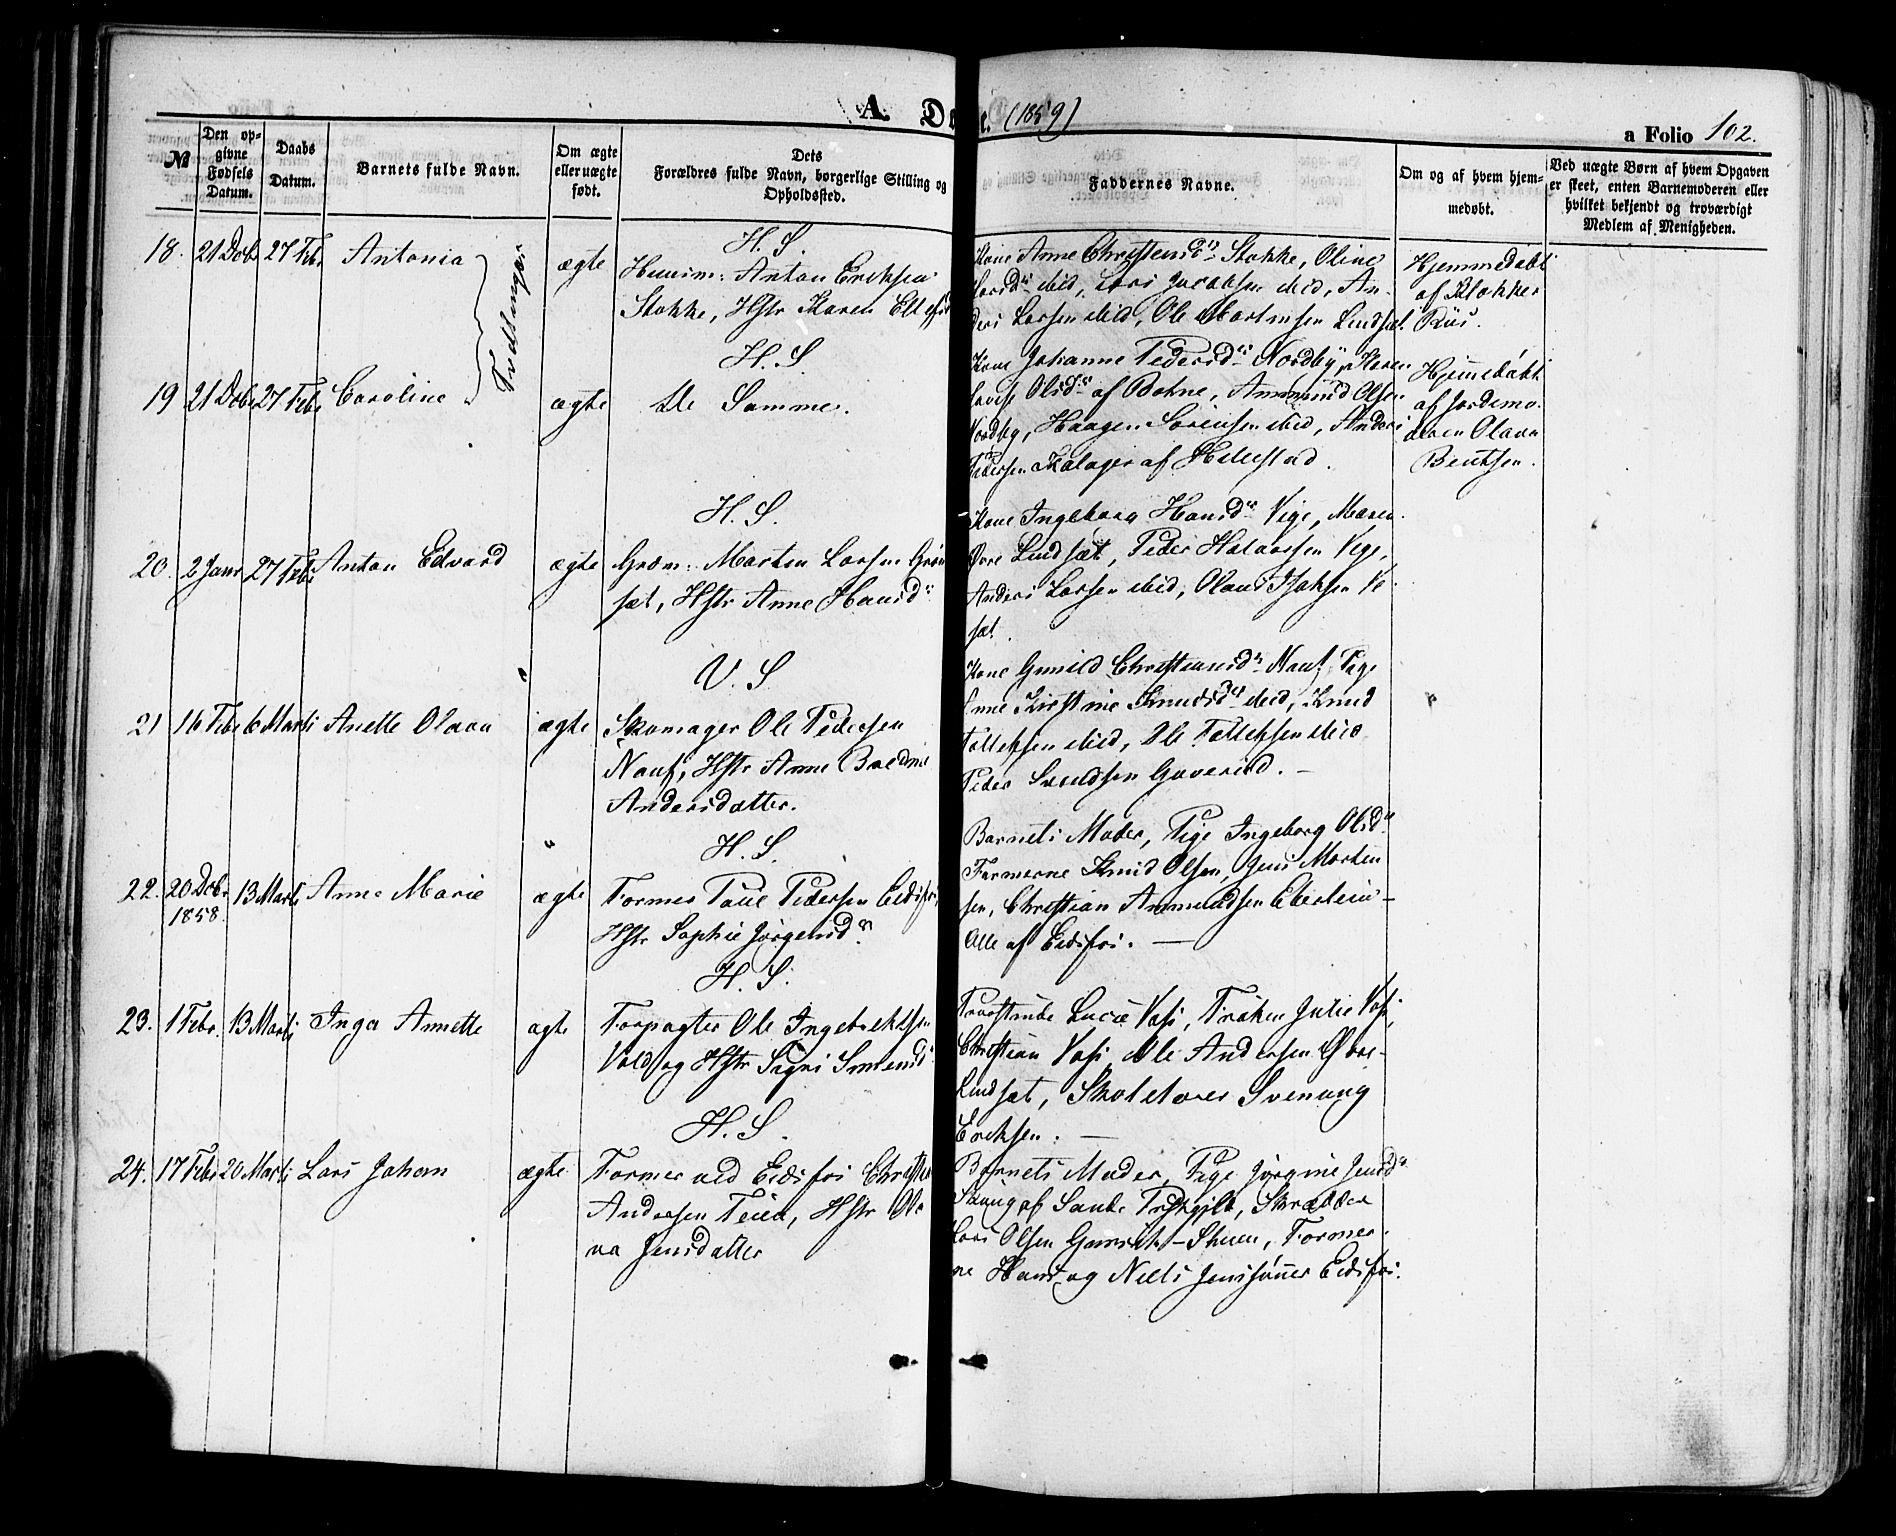 A. Dø e. (1859)
a Folio 102.
№
Den opgivne Fødsels Datum.
Daabs Datum.
Barnets fulde Navn.
Om ægte eller uægte født.
Dets Forældres fulde Navn, borgerlige Stilling og Opholdssted.
Faddernes Navne.
Om og af hvem hjemmedøbt.
Ved uægte Børn af hvem Opgaven er skeet, enten Barnemoderen eller hvilket bekjendt og troværdigt Medlem af Menigheden.
H. S.
18. 21 Dcbr 27 Febr Antonia ægte
Tvillinger
Huusm: Anton Eriksen
Stokke, Hstr Karen
Kone Anne Christensdr Stokke, Oline
Larsdr ibid, Lars Jacobsen ibid, An-
ders Larsen ibid, Ole Martinsen Lindsæt.
Hjemmedøbt
af Klokker
Riis.
H. S.
19 21 Dcbr 27 Febr Caroline ægte De Samme.
Kone Johanne Pedersdr Nordby, Karen
Lovise Olsdr af Bohne, Ammund Olsen
Nordby, Haagen Sørensen ibid, Anders
Pedersen Skolager af Hillestad.
Hjemmedøbt
af Jordemo-
deren Olava
Bentsen.
H. S.
20. 2 Janr 27 Febr Anton Edvard ægte Grdm: Morten Larsen Grøn
sæt, Hstr Anne Hansdr
Kone Ingeborg Hansdr Vige, Maren
Øvre Lindsæt, Peder Halvorsen Vige,
Anders Larsen ibid, Olaus Isaksen Ve-
sæt.
V. S.
21 16 Febr 6 Marti Anette Olava ægte Skomager Ole Pedersen
Nauf, Hstr Anne
Andersdatter.
Kone Gunild Christiansdr Nauf, Pige
Anne Kirstine Knudsdr ibid, Knud
Tollefsen ibid, Ole Tollefsen ibid
Peder Svendsen
H. S.
22. 20 Dcbr 1858. 13 Marti Anne Marie ægte Former Poul Pedersen Eidsfos,
Hstr Sophie Jørgensdr
Barnets Moder, Pige Ingeborg Olsdr
Formerne Knud Olsen, Jens Morten
sen, Christian Ammundsen Eberstein-
Alle af Eidsfos.
H. S.
23. 1 Febr. 13 Marti Inga Annette ægte Forpagter Ole Ingebrektsen
Vold, og Hstr Signi
Provstinde Lucie Vosi, Frøken Julie Vosi,
Christian Vosi, Ole Andersen Øvre-
Lindsæt, Skolelærer Svenung
Eriksen.
H. S.
24. 17 Febr 20 Marti Lars Johan ægte Former ved Eidsfos Christen
Andersen Teien, Hstr Ola
va Jensdatter
Barnets Moder, Pige Jørgine Jensdr
Skaug af Sande Prstgjld, Skrædder
Lars Olsen Stuen, Former-
ne Hans og Niels Jenssønner Eidsfos.